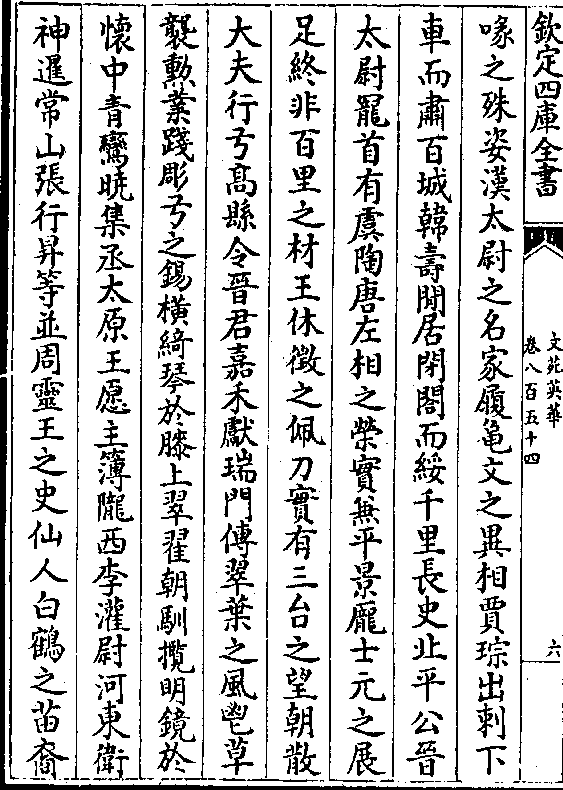 欽定四庫全書
文苑英華
卷八百五十四
六
喙之殊姿漢太尉之名家履龜文之異相賈琮出刺下
車而肅百城韓壽閒居閉閤而綏千里長史北平公晉
太尉寵首有虞陶唐左相之榮實無平景龎士元之展
足終非百里之材王休徵之佩刀實有三台之望朝散
大夫行亐髙縣令晉君嘉禾獻瑞門傳翠葉之風鬯草
襲勲業踐彫亐之錫橫綺琴於膝上翠翟朝馴攬明鏡於
懷中青鸞曉集丞太原王愿主簿隴西李灌尉河東衛
神暹常山張行昇等並周靈王之史仙人白鶴之苗裔